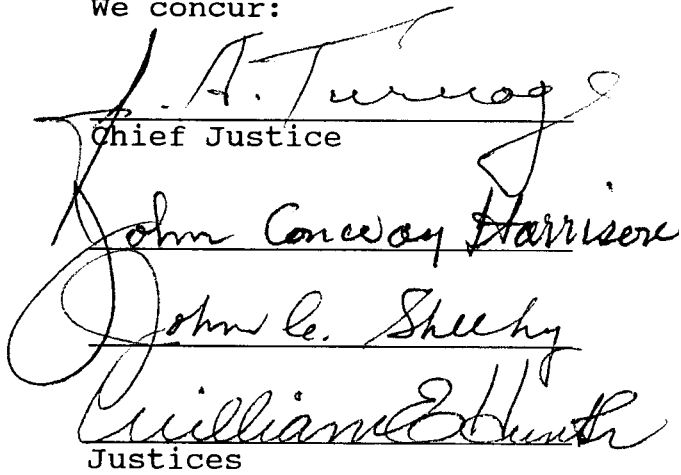 We concur:
J. A. Turnage
Chief Justice
John Conway Harrison
John C. Sheehy
William E Hunt
Justices